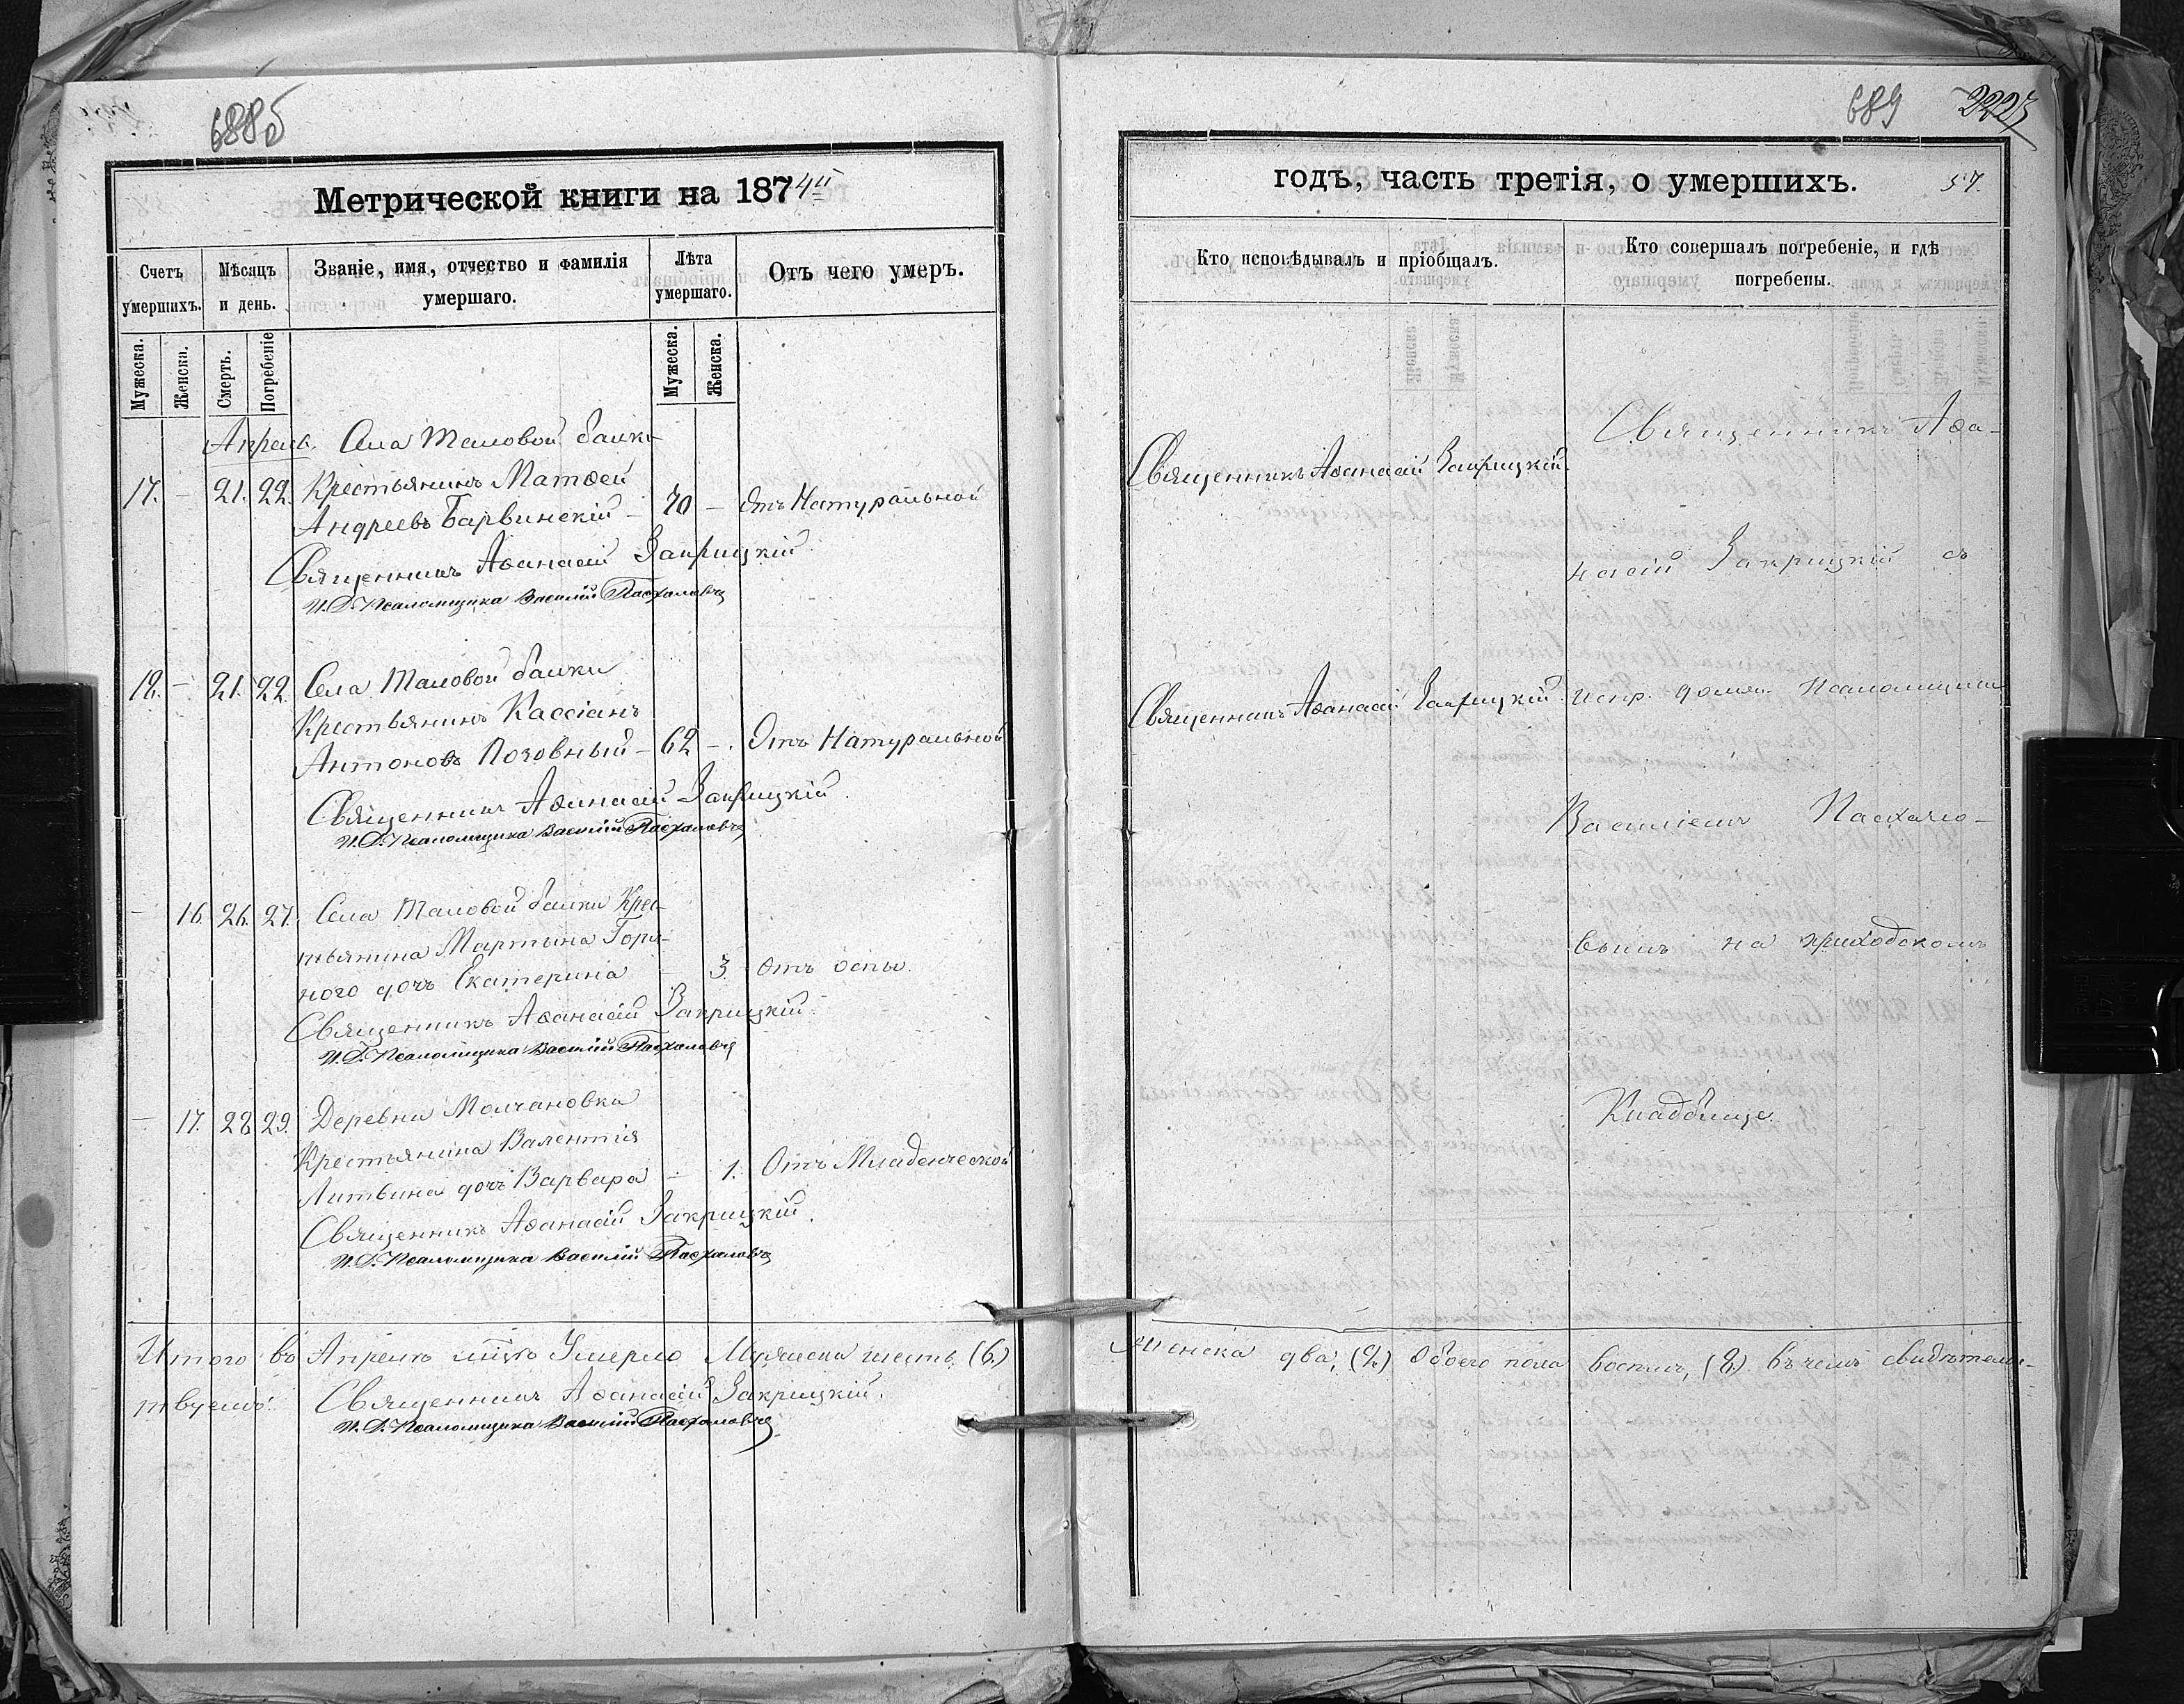 688б
Метрической книги на 1874й
Счетъ умершихъ.
Мѣсяцъ и день.
Званіе, имя, отчество и фамилія умершаго.
Лѣта умершаго.
Отъ чего умеръ.
Мужеска.
Женска.
Смерть.
Погребеніе
Мужеска.
Женска.
Апрель. Села Таловой балки
17. - 21. 22. Крестьянинъ Матѳей
Андреевъ Барвинскій - 70 - Отъ Натуральной
Священникъ Аѳанасій Закрицкій
И. Д. Псаломщика Василій Пасхаловъ
18. - 21. 22. Села Таловой балки
Крестьянинъ Кассіанъ
Антоновъ Позовный - 62 - Отъ Натуральной
Священникъ Аѳанасій Закрицкій.
И. Д. Псаломщика Василій Пасхаловъ
- 16. 26. 27. Села Таловой балки Крес-
тьянина Мартына Горя-
ного дочь Екатерина - 3. Отъ оспы.
Священникъ Аѳанасій Закрицкій
И. Д. Псаломщика Василій Пасхаловъ
- 17. 28. 29. Деревни Молчановки
Крестьянина Валентія
Литвина дочь Варвара - 1. Отъ Младенческой
Священникъ Аѳанасій Закрицкій.
И. Д. Псаломщика Василій Пасхаловъ
Итого въ Апрелѣ м̃цѣ Умерло Мужеска шесть, (6.)
твуемъ: Священникъ Аѳанасій Закрицкій.
И. Д. Псаломщика Василій Пасхаловъ
689 2223
годъ, часть третія, о умершихъ. 57.
Кто исповѣдывалъ и пріобщалъ.
Кто совершалъ погребеніе, и гдѣ погребены.
Священникъ Аѳанасій Закрицкій.
Священникъ Аѳа-
насій Закрицкій съ
Священникъ Аѳанасій Закрицкій.
испр. долж. Псаломщика
Василіемъ Пасхало-
вымъ на приходскомъ
Кладбище.
Женска два, (2.) Обоего пола восемь, (8.) въ чемъ свидѣтельс-